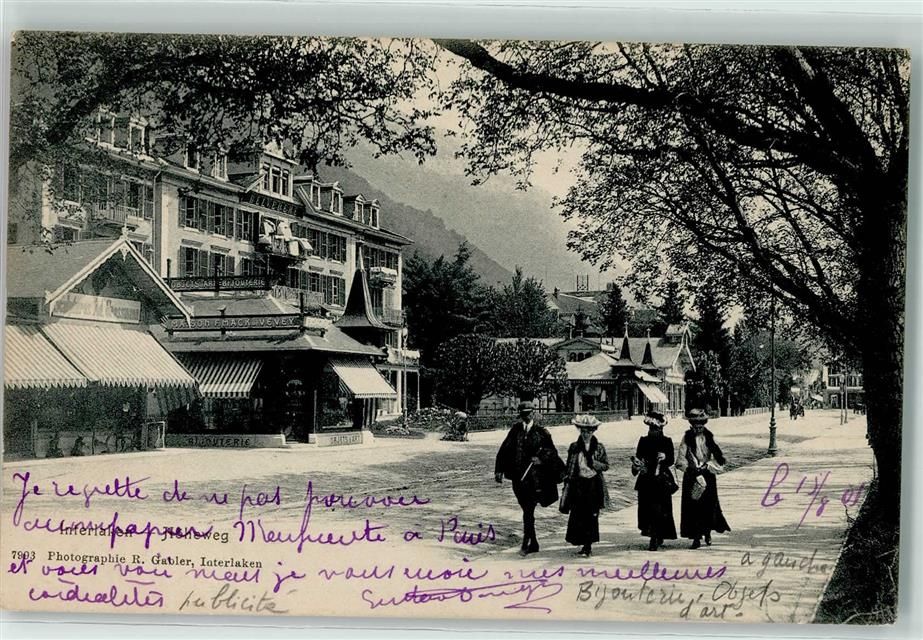 OBJETS D'ART BIJOUTERIE
MAISON F. MACK de VEVEY
BIJOUTERIE
OBJETS D'ART
le 1 8 01
Je regrette de ne pas pouvoir
accompagner Marguerite à Paris
Interlaken Höheweg
7993 Photographie R. Gabler, Interlaken
et vous voir mais je vous envoie mes meilleures
cordialités
publicité
à gauche
Bijouterie, Objets
d'art